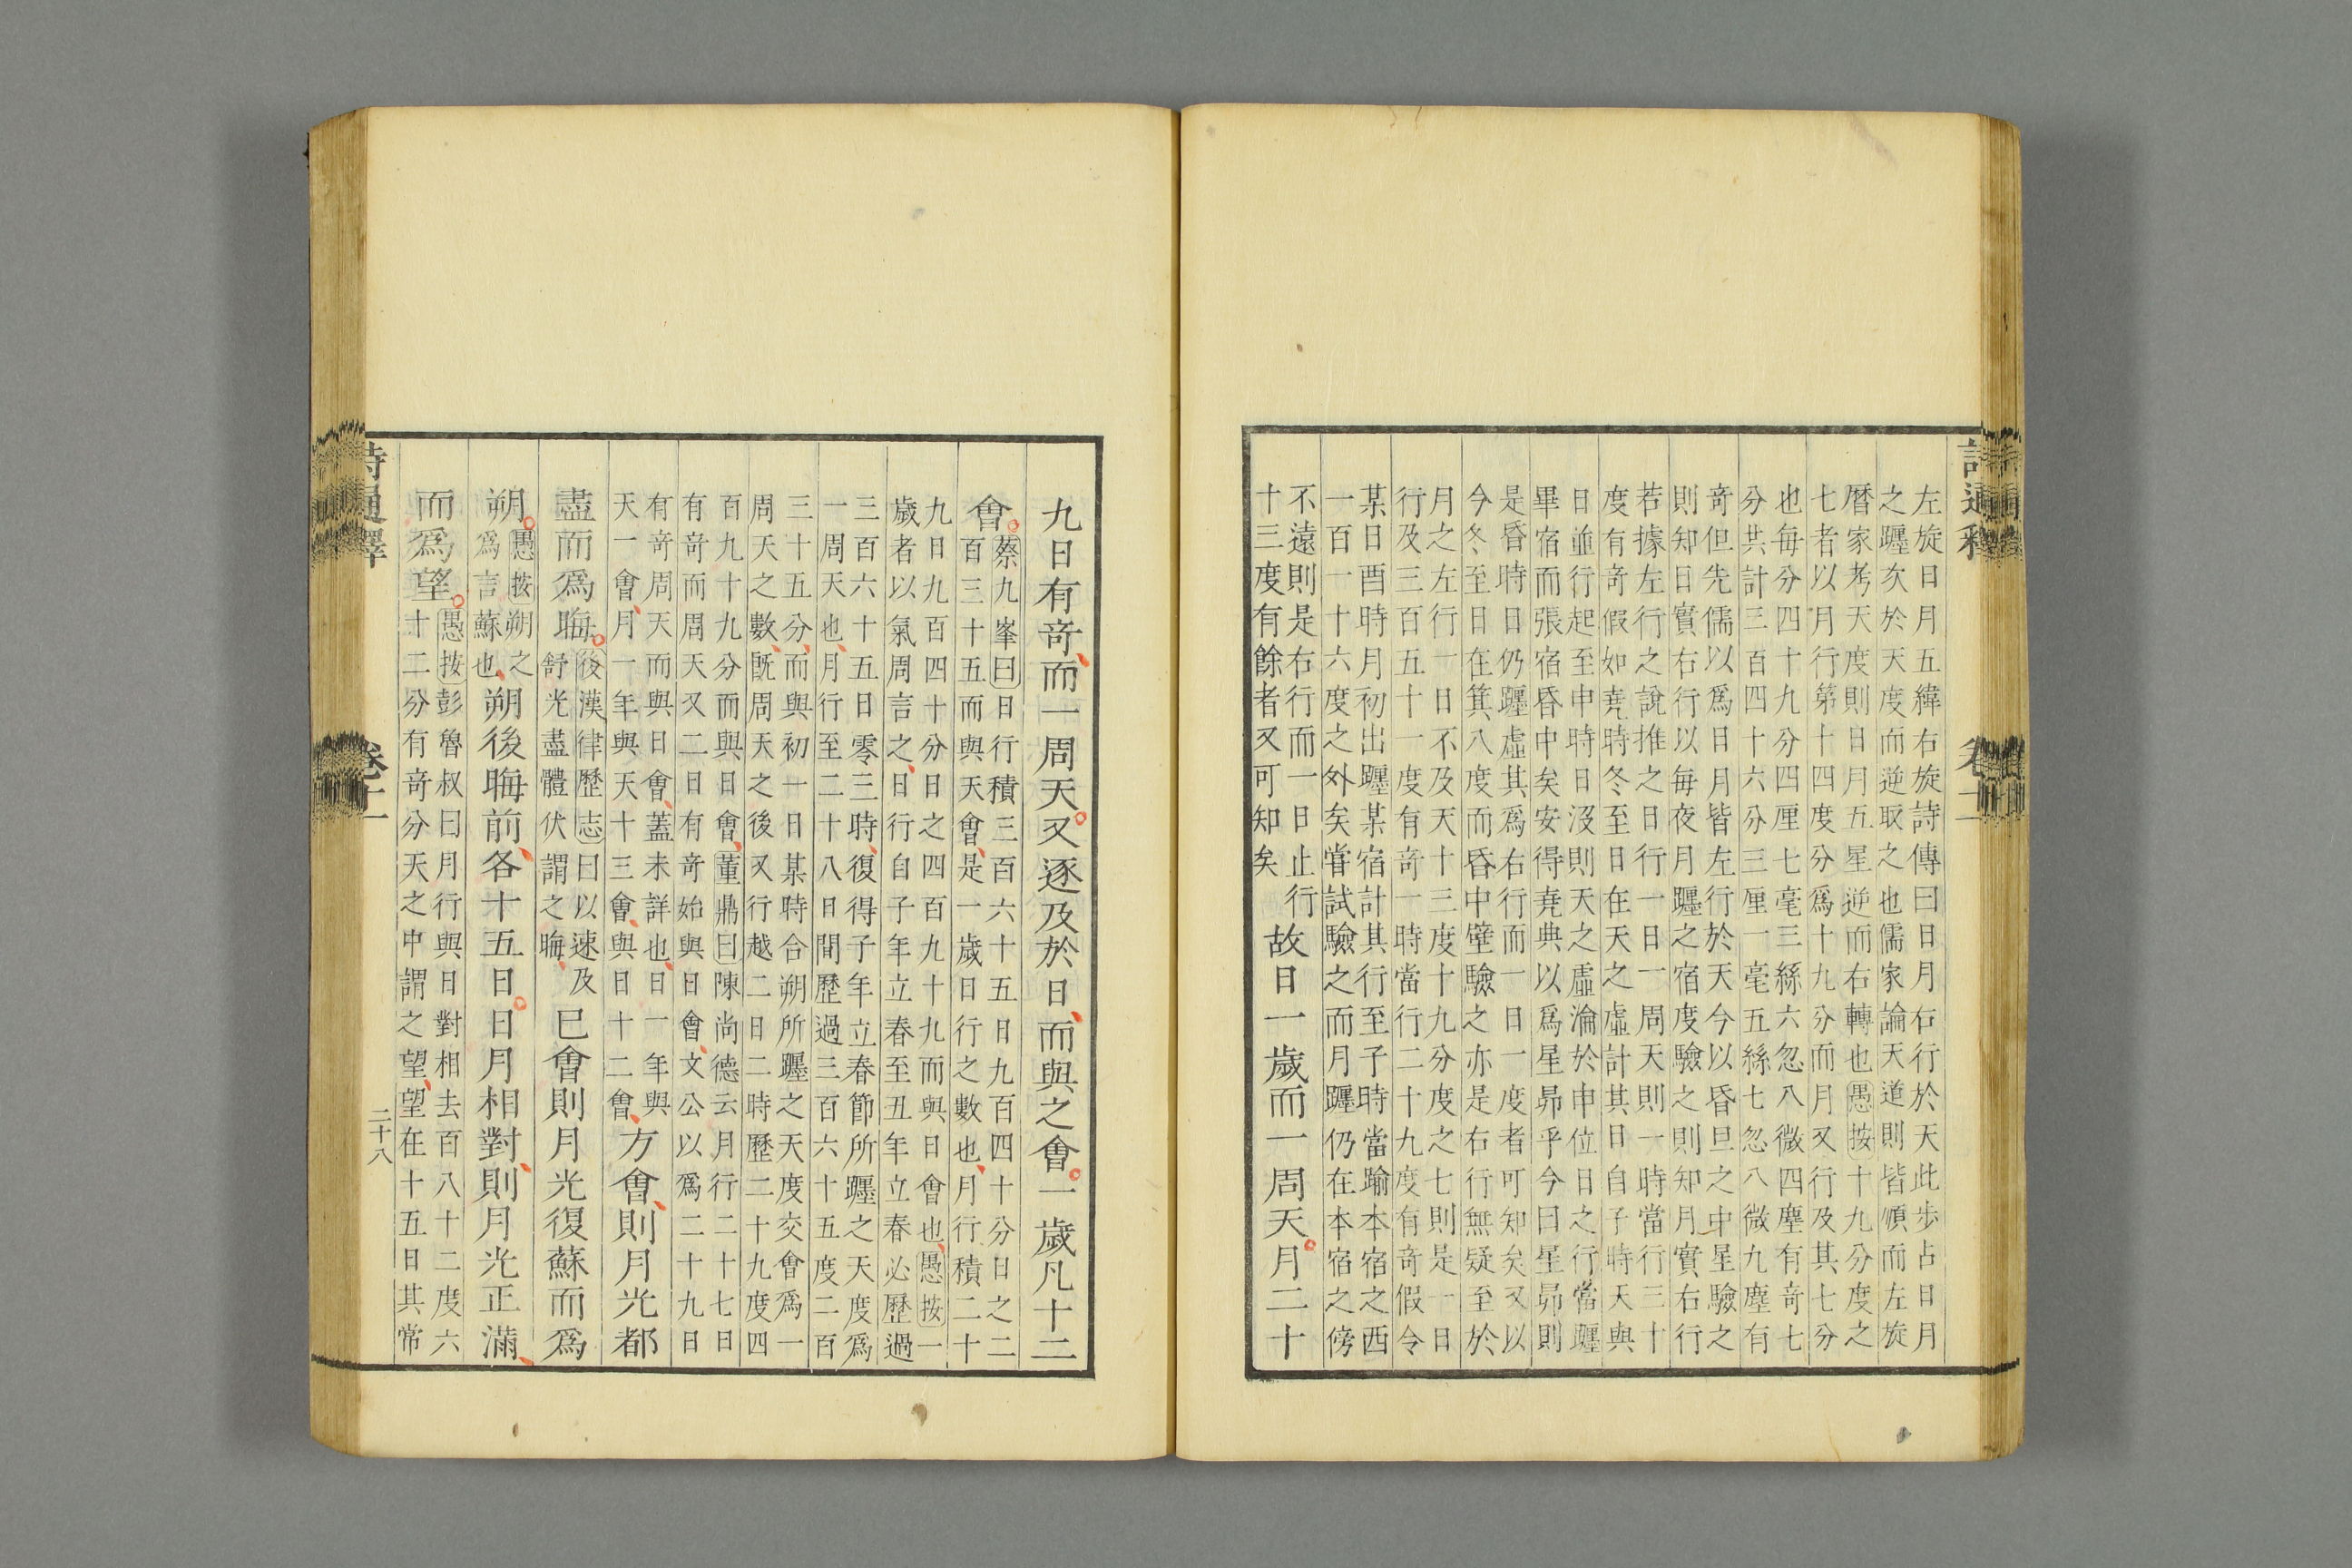 左旋日月五緯右旋詩傳曰日月右行於天此步占日月
之躔次於天度而逆取之也儒家論天道則皆順而左旋
曆家考天度則日月五星逆而右轉也愚按十九分度之
七者以月行第十四度分爲十九分而月又行及其七分
也每分四十九分四厘七毫三絲六忽八微四塵有奇七
分共計三百四十六分三厘一毫五絲七忽八微九塵有
奇但先儒以爲日月皆左行於天今以昏旦之中星驗之
則知日實右行以每夜月躔之宿度驗之則知月實右行
若據左行之說推之日行一日一周天則一時當行三十
度有奇假如堯時冬至日在天之虛計其日自子時天與
日並行起至申時日沒則天之虛淪於申位日之行當躔
畢宿而張宿昏中矣安得堯典以爲星昴乎今曰星昴則
是昏時日仍躔虛其爲右行而一日一度者可知矣又以
今冬至日在箕八度而昏中壁驗之亦是右行無疑至於
月之左行一日不及天十三度十九分度之七則是一日
行及三百五十一度有奇一時當行二十九度有奇假令
某日酉時月初出躔某宿計其行至子時當踰本宿之西
一百一十六度之外矣嘗試驗之而月躔仍在本宿之傍
不遠則是右行而一日止行
十三度有餘者又可知矣
故日一歲而一周天月二十
九日有奇而一周天又逐及於日而與之會一歲凡十二
會
蔡九峯曰日行積三百六十五日九百四十分日之二
百三十五而與天會是一歲日行之數也月行積二十
九日九百四十分日之四百九十九而與日會也愚按一
歲者以氣周言之日行自子年立春至丑年立春必歷過
三百六十五日零三時復得子年立春節所躔之天度爲
一周天也月行至二十八日間歷過三百六十五度二百
三十五分而與初一日某時合朔所躔之天度交會爲一
周天之數旣周天之後又行越二日二時歷二十九度四
百九十九分而與日會董鼎曰陳尚德云月行二十七日
有奇而周天又二日有奇始與日會文公以爲二十九日
有奇周天而與日會蓋未詳也日一年與
天一會月一年與天十三會與日十二會
方會則月光都
盡而爲晦
後漢律歷志曰以速及
舒光盡體伏謂之晦
已會則月光復蘇而爲
朔
愚按朔之
爲言蘇也
朔後晦前各十五日日月相對則月光正滿
而爲望
愚按彭魯叔曰月行與日對相去百八十二度六
十二分有奇分天之中謂之望望在十五日其常
二十八